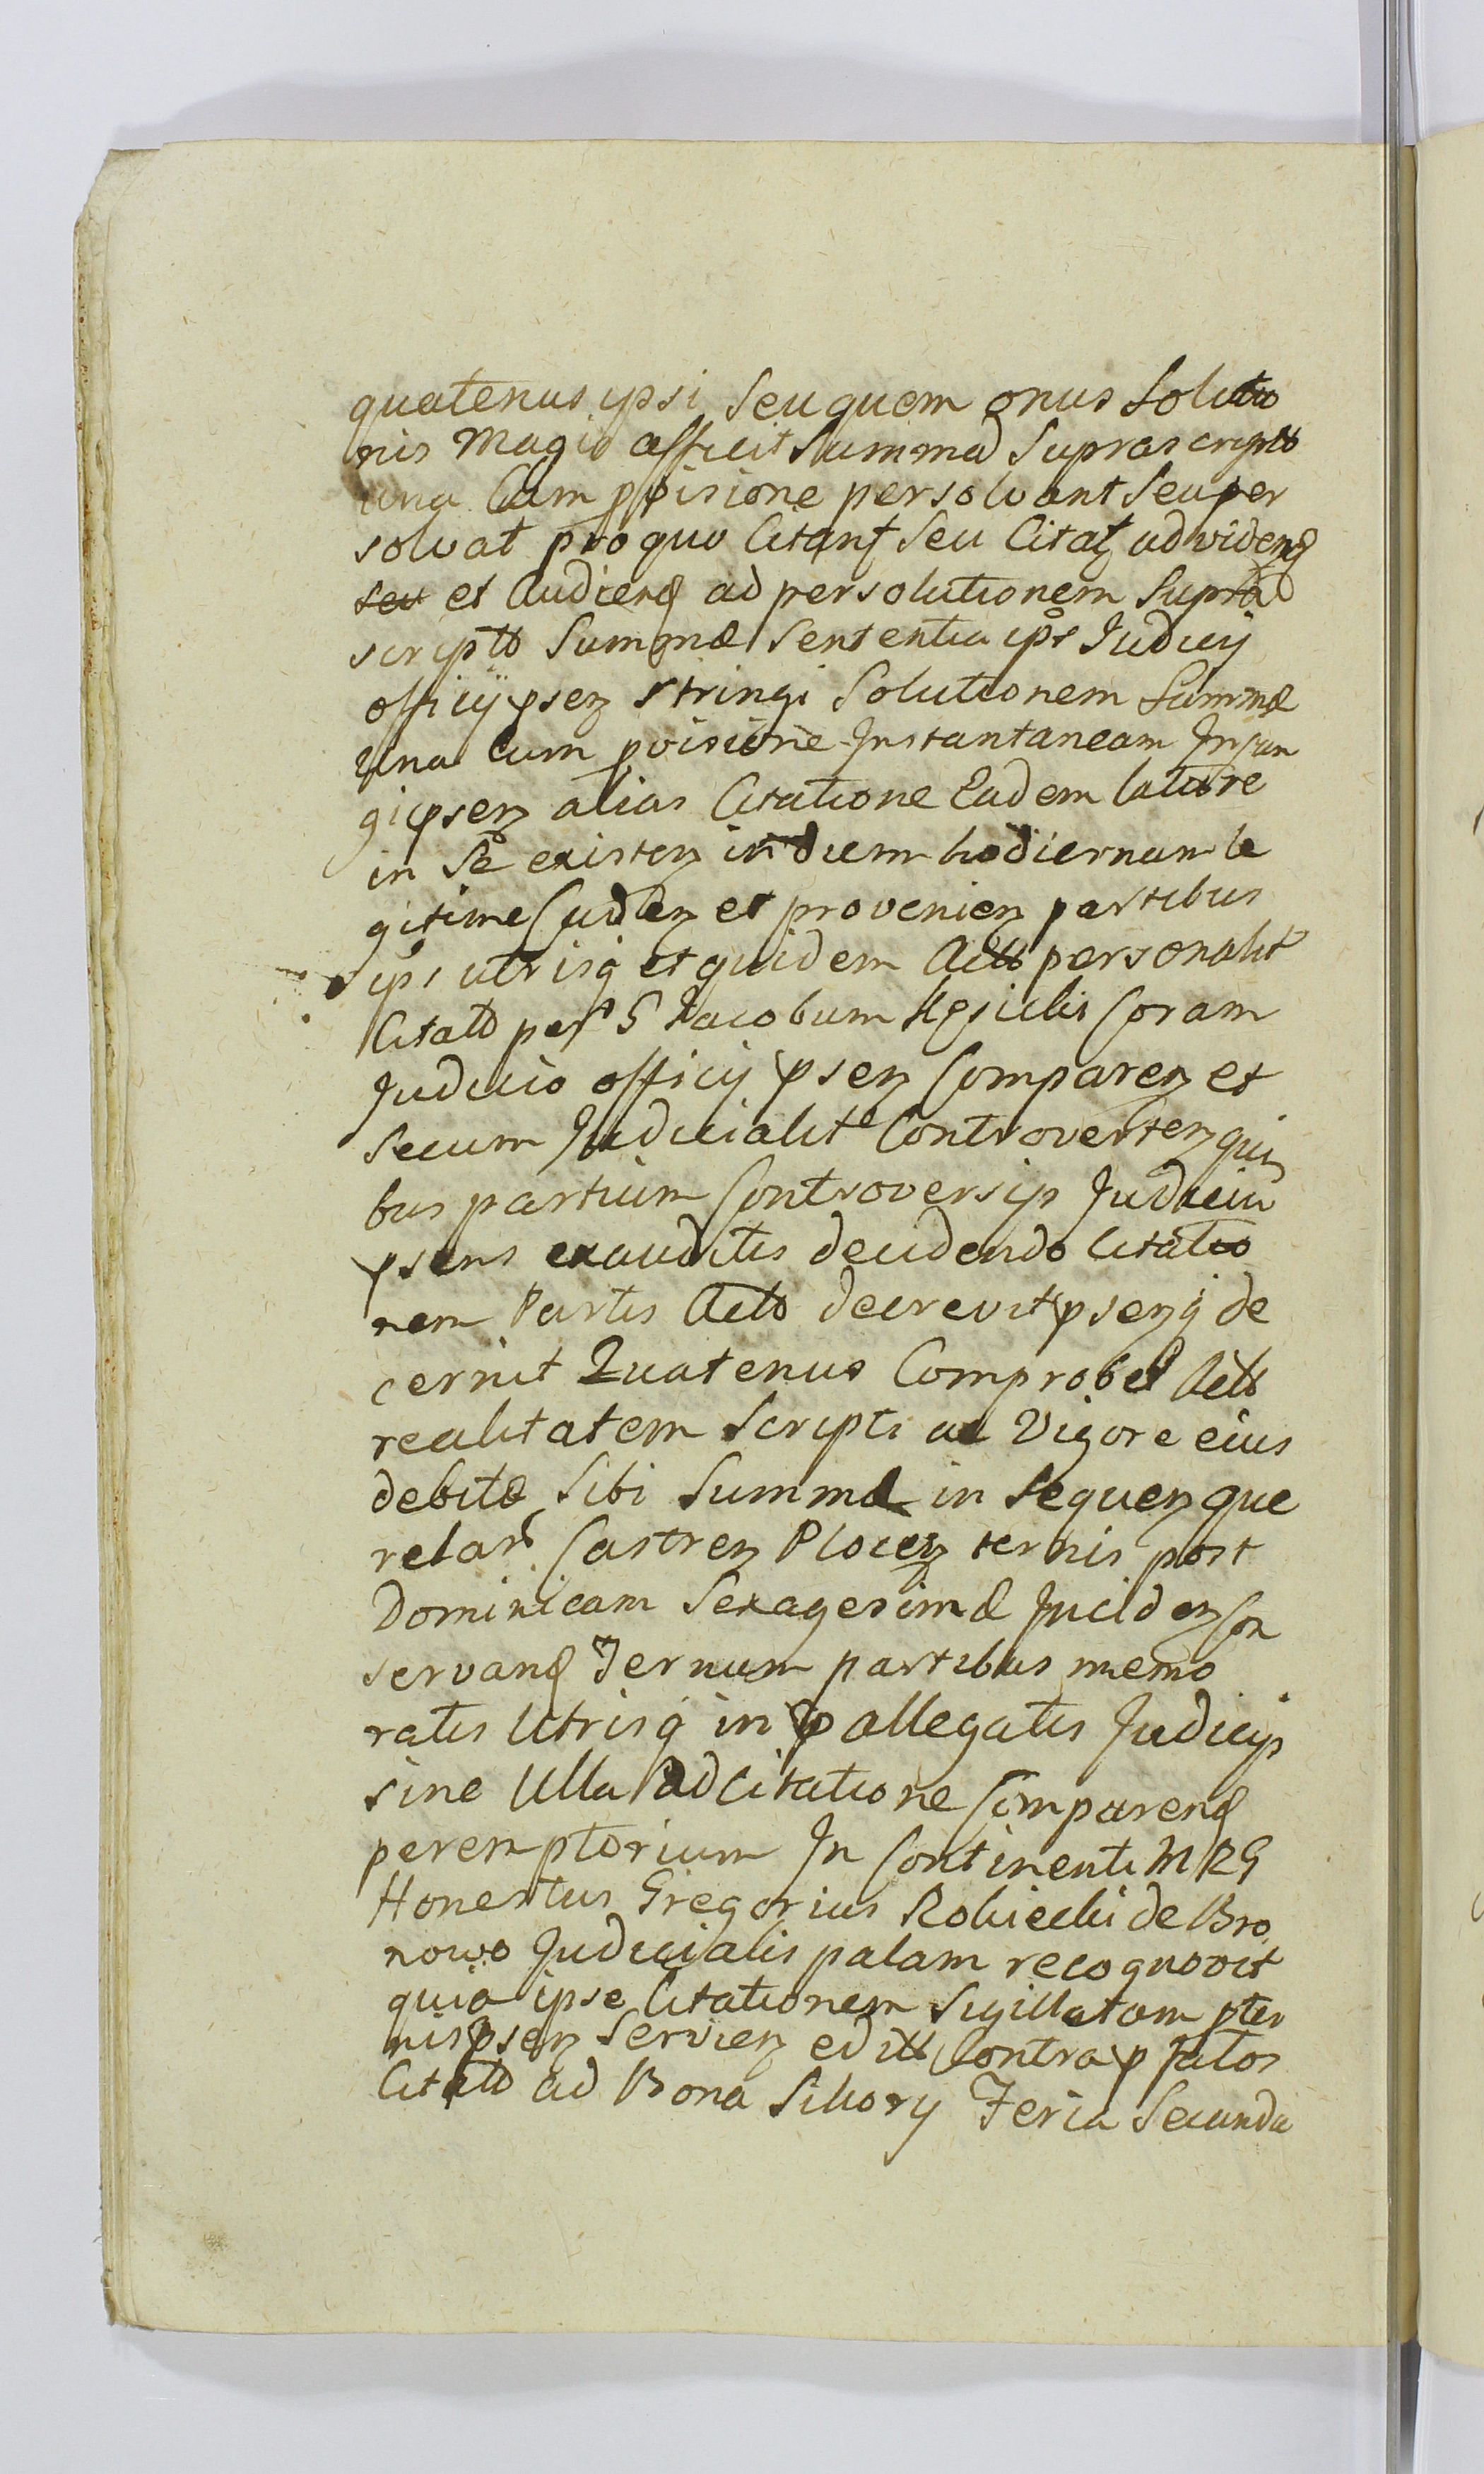 quatenus ipsi seu quem onus Solutio
nis Magis afficit Summā Suprascriptā
una Cum pvisione persolvant seu per
solvat pro quo Citant seu Citatz ad videnđ
et Audienđ ad persolutionem Supra
scriptæ Summæ Sententia ips Judicij
officij psenz stringi Solutionem Summæ
Una cum pvisione Instantaneam Injun
gi psenz alias Citatione Eadem latiore
in Se existenz in diem hodiernum le
gitime Cadenz et provenienz partibus
ips utrisq et quidem Actt personalit
Citatt per G Jacobum coram
Judicio officij psenz Comparenz et
secum Judicialitr Controvertenz qui
bus partium Controversijs Judiciū
psens exauditis decidendo Citatio
nem Partis Actt decrevit psenzq de
cernit Quatenus Comprobet Actt
realitatem Scripti ac Vigore eius
debitæ Sibi Summæ in Sequenz que
relar Castrenz Plocenz ternis post
Dominicam Sexagesimæ Incidenz Con
servanđ Ternum partibus memo
ratis Utrisq in p allegatis Judicijs
sine Ulla adcitatione Comparenđ
peremptorium In Continenti MRG
Honestus Gregorius Robiecki de Bro
nowo Judicialis palam recognovit
quia ipse Citationem Sigillatam pter
nis psenz Servienz editt Contra pfatos
Citatt ad Bona Sikory Feria Secunda